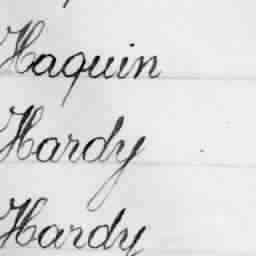 Haquin
Hardy
Hardy